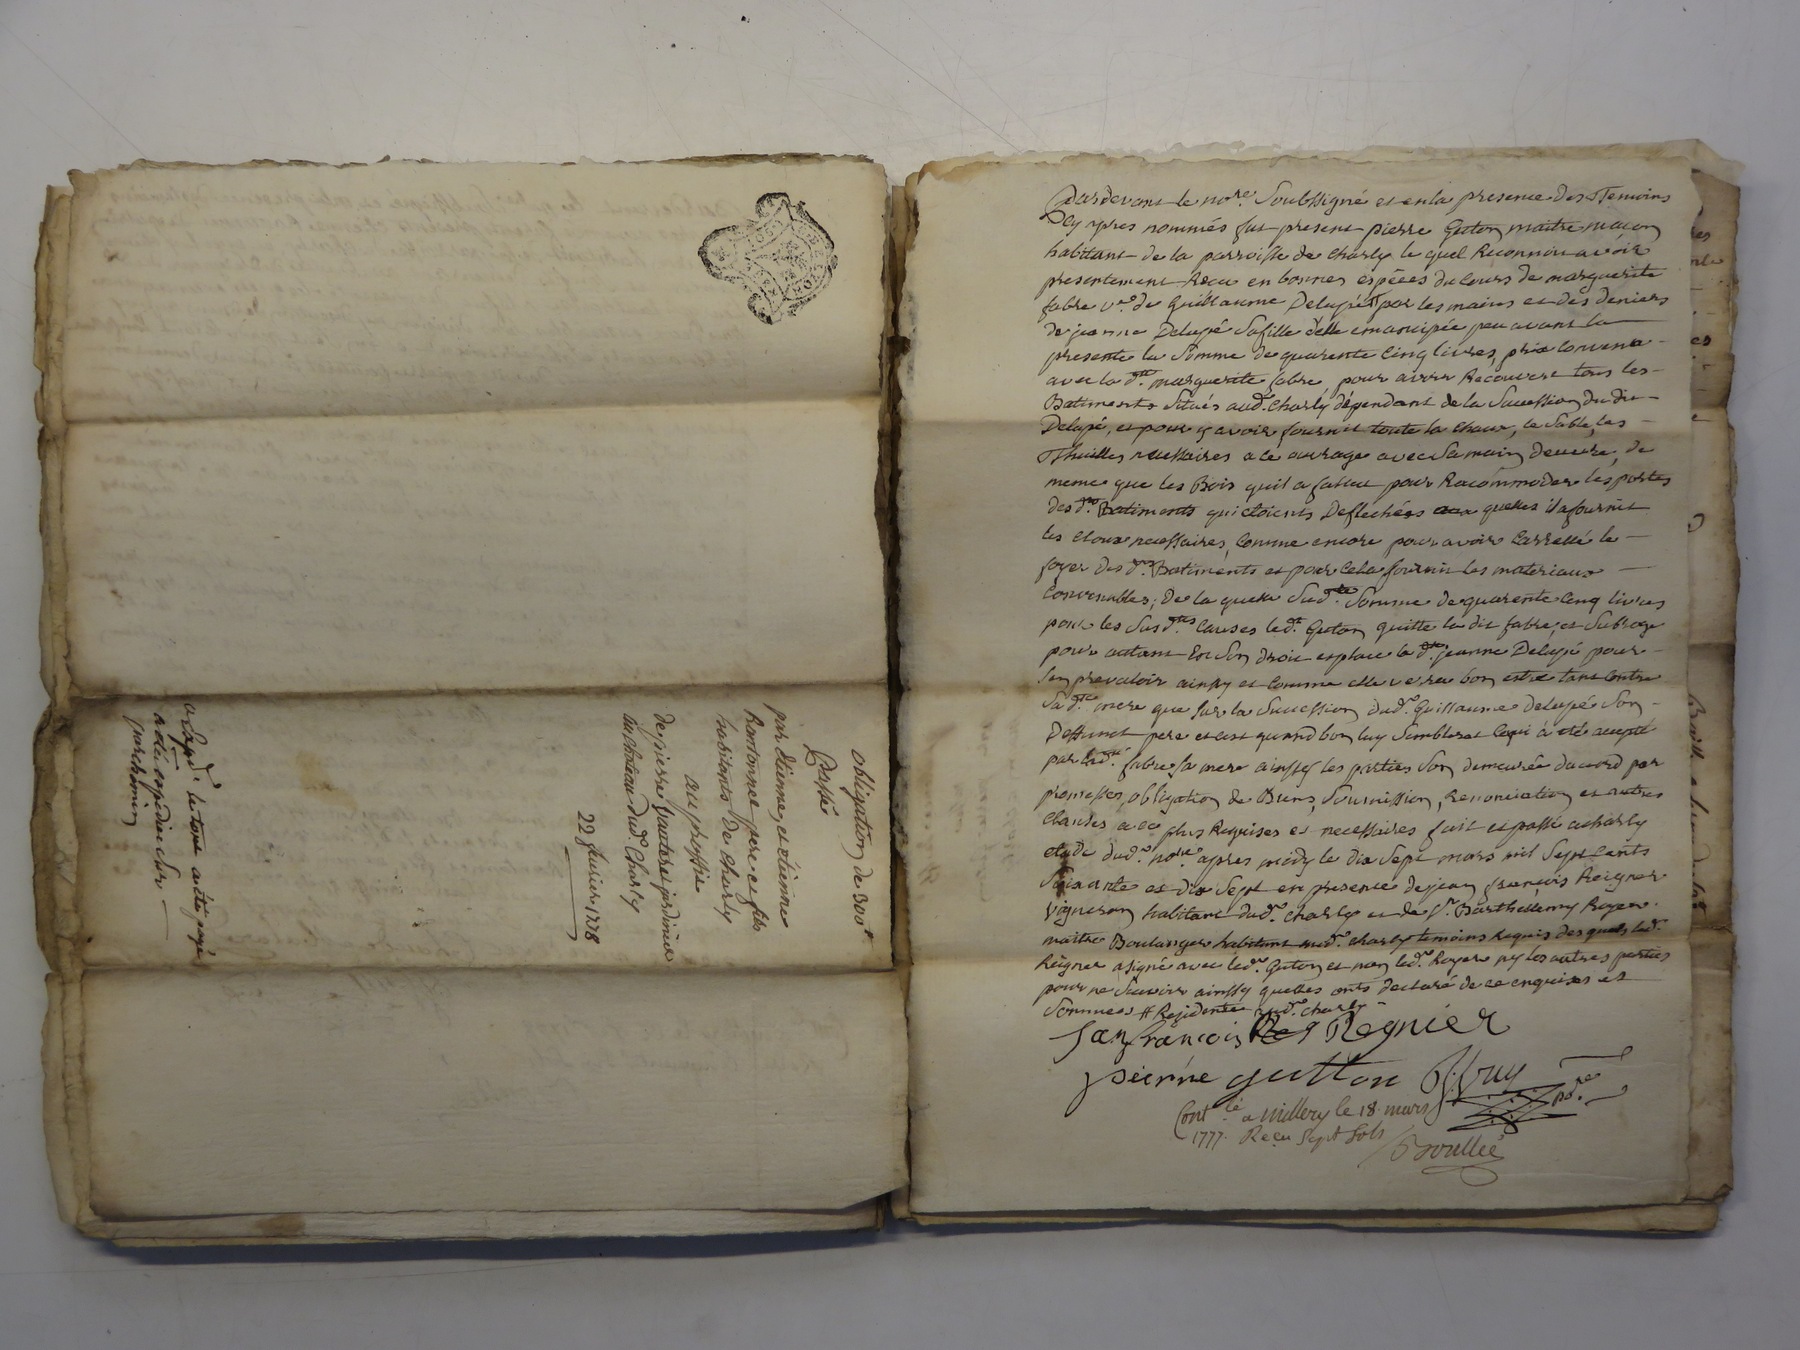 obligation de 300#
Passée
par Etienne, et Etienne
Rantonnet pere et fils
habitants de Charly
au proffit
de pierre jardinier
au chateau dud. Charly
22 fevrier 1778
a été payé
a été expedié sur
parchemin
Pardevant le nore. Soubssigné et en la presence des Temoins
Cy apres nommés fut present pierre Guton maitre maçon
habitant de la parroisse de Charly le quel Reconnoit avoir
presentement Recu en bonnes espéces du Cours de marguerite
fabre ve. de Guillaume Delupé # par les mains et des deniers
de jeanne Delupé Sa fille d'elle emancipée peu avant la
presente la Somme de quarente Cinq livres, prix Convenu
avec la dte. marguerite fabre, pour avoir Recouvert tous les
Batiments Situés aud. Charly dépendant de la Succession du dit
Delupé, et pour y avoir fournit toute la Chaux, le Sable, les
Thuilles necessaires a ce ouvrage avec Sa main deuvre, de
meme que les Bois quil a fallut pour Racommoder les portes
des d. Batiments qui etoients Deflechées aux quelles il a fournit
les Cloux necessaires, Comme encore pour avoir Carrellé le
foyer des d. Batiments et pour Cela fournit les materiaux
Convenables; De la quelle Sud. te Somme de quarente Cinq livres
pour les Susd. tes Causes led. Guton quitte la dit fabre, et Subroge
pour autant En Son droit et place la d. te jeanne Delupé pour
Sen prevaloir ainsy et Comme elle verra bon estre tant Contre
Sa d. te mere que Sur la Succession dud. Guillaume delupé Son
Deffunct pere et cest quand bon luy Semblerat Cequi à été accepté
par lad. fabre Sa mere ainssy les parties Son demeurée dacord par
promesses, obligation de Biens, Soumission, Renonciation et autres
Clauses a ce plus Requises et necessaires fait et passé a Charly
etude dud. nore apres midy le dix Sept mars mil Sept Cents
Soixante et dix Sept en presence de jean françois Reigner
vigneron habitant dud. Charly et de Sr. Barthellemy Royer
maitre Boulanger habitant aud. Charly temoins Requis des quels led.
Reigner a signé avec led. Guton et non led. Royer ny les autres parties
pour ne Scavoir ainssy quelles onts declaré de ce enquises et
Sommees # Residente aud. Charly
Jan françois Regnier
pierre gutton
Cont. lé a Millery le 18. mars
1777. Reçu Sept Sols